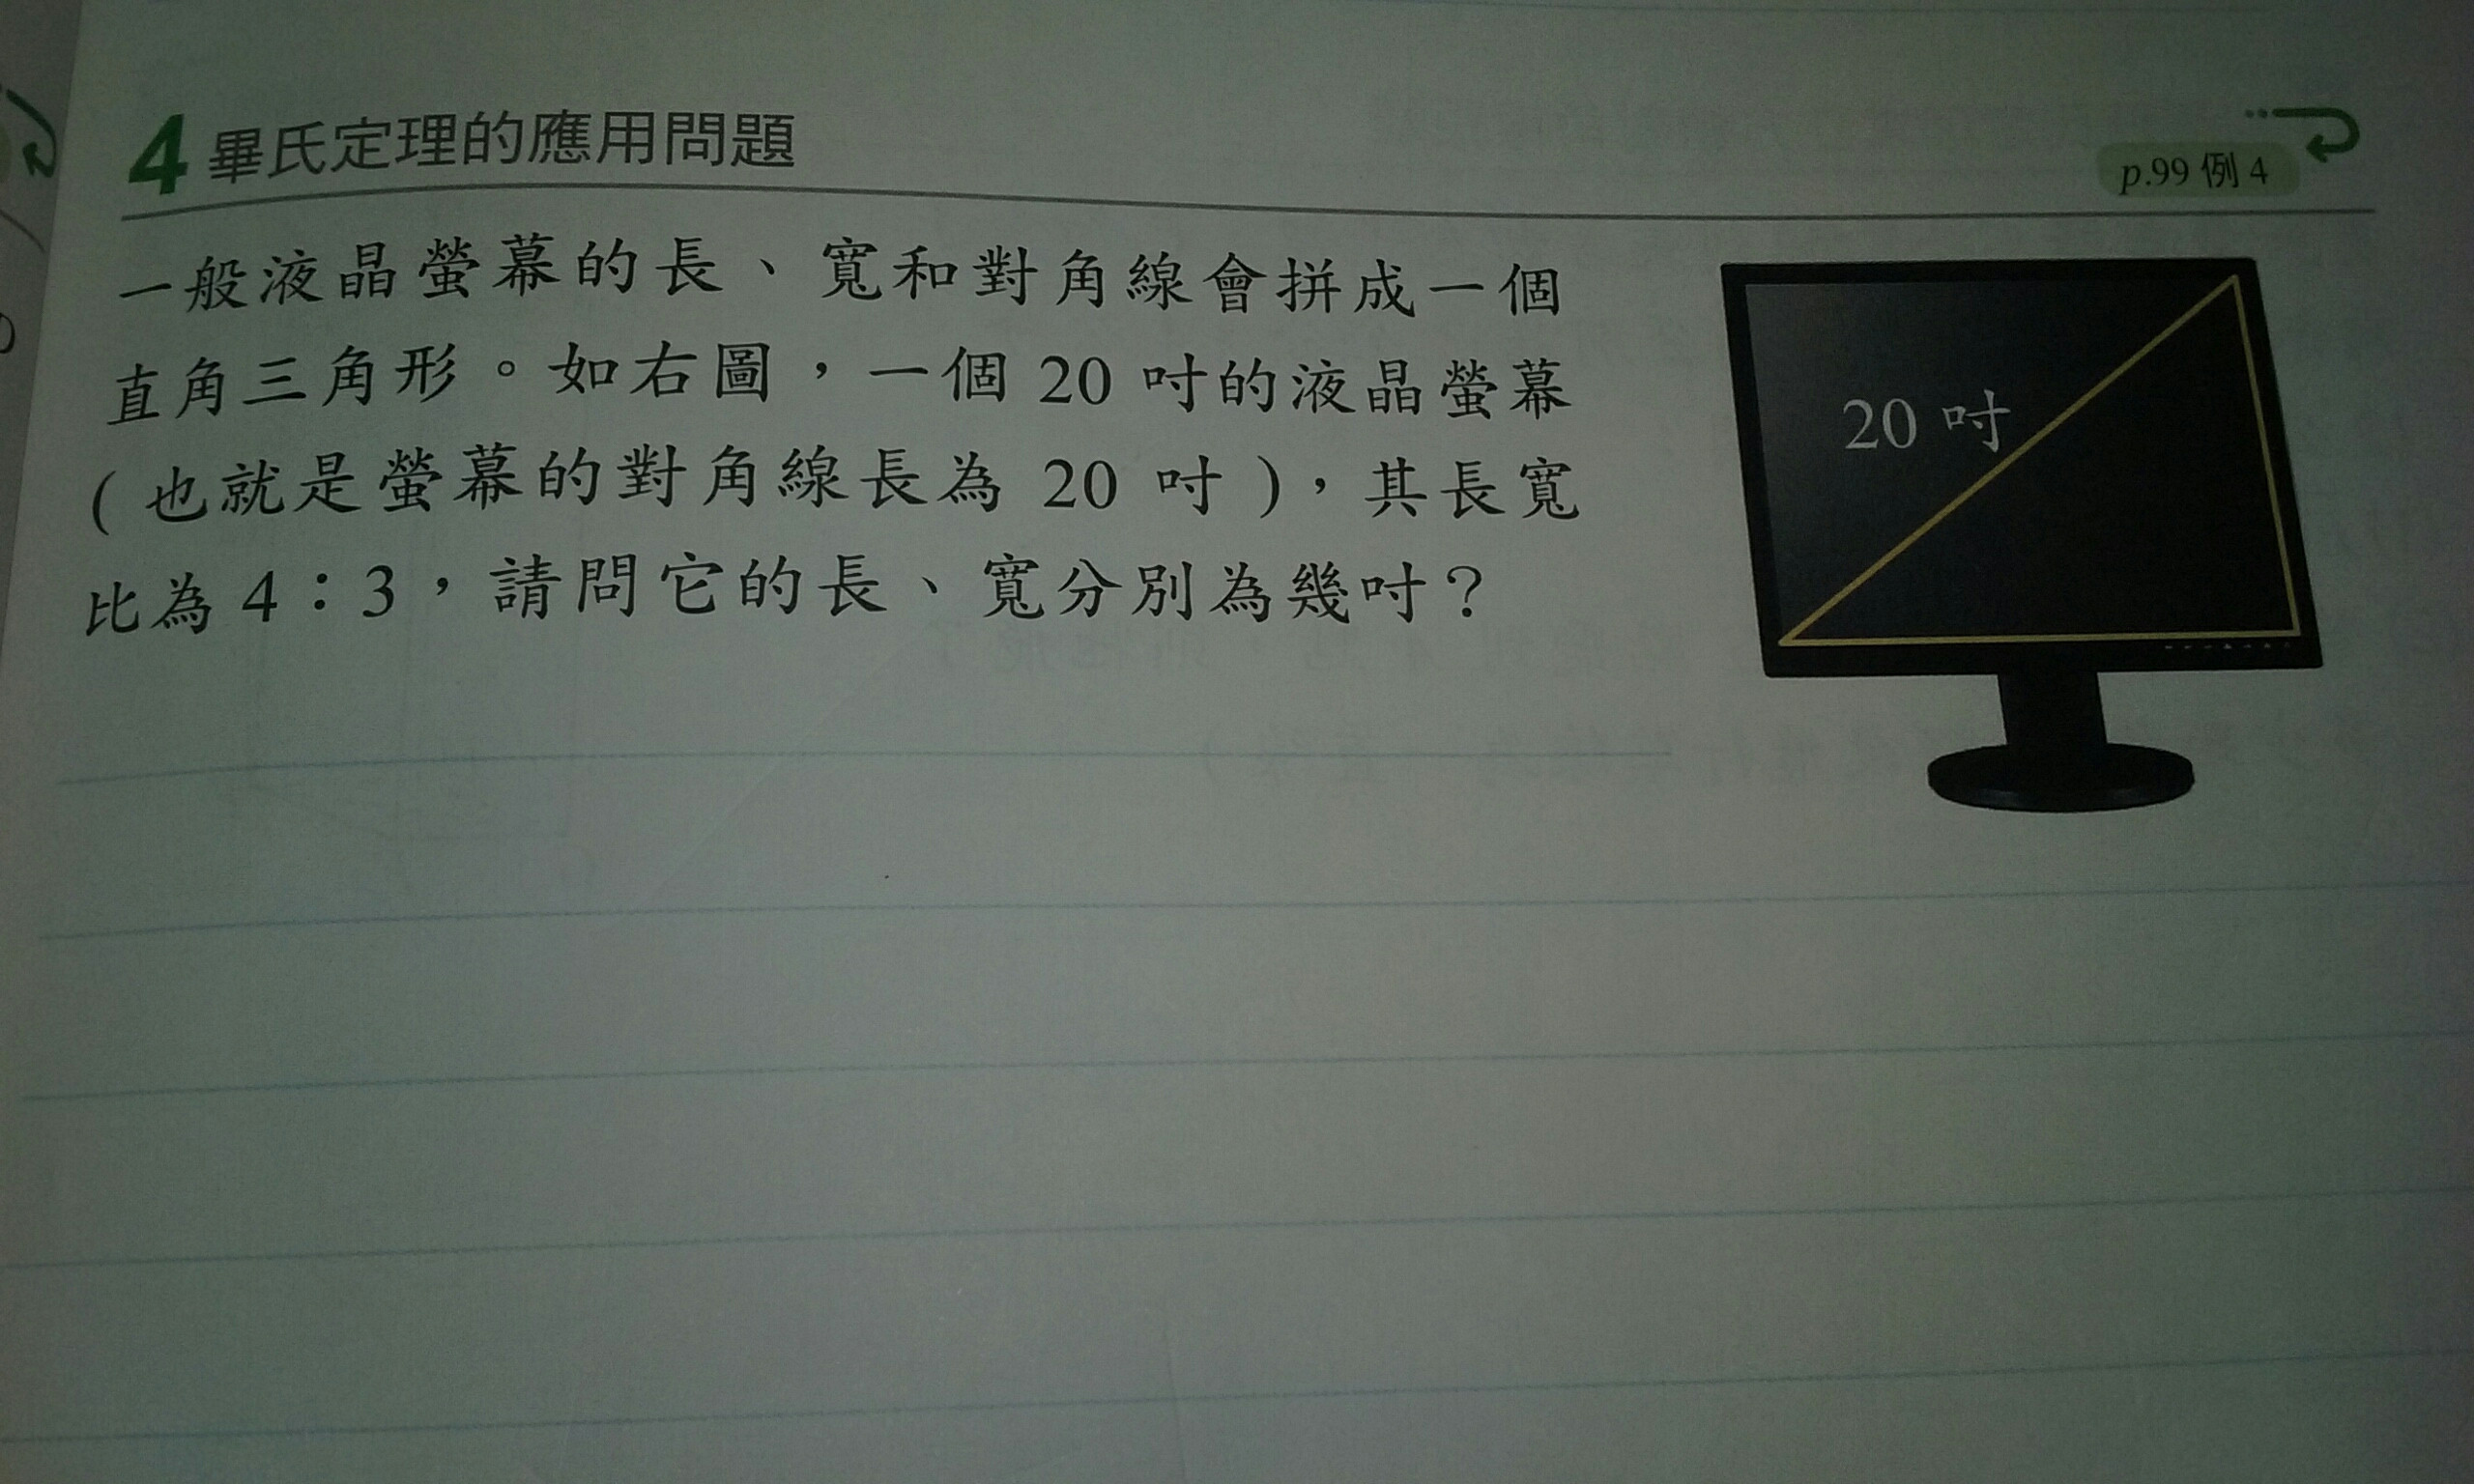 4 畢氏定理的應用問題
p.99 例 4
一般液晶螢幕的長、寬和對角線會拼成一個
直角三角形。如右圖，一個 20 吋的液晶螢幕
( 也就是螢幕的對角線長為 20 吋 )，其長寬
比為 4：3，請問它的長、寬分別為幾吋？
20 吋